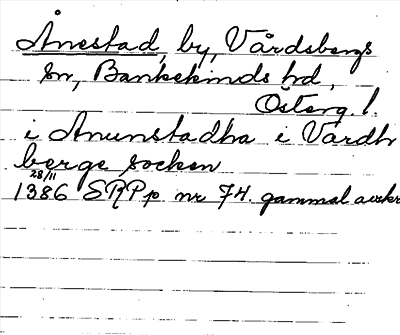 Ånestad, by, Vårdsbergs
sn, Bankekinds hd,
Österg l.
i Anunstadha i Vardh
berge socken
28/11
1386 SRPp nr 74. gammal avskr